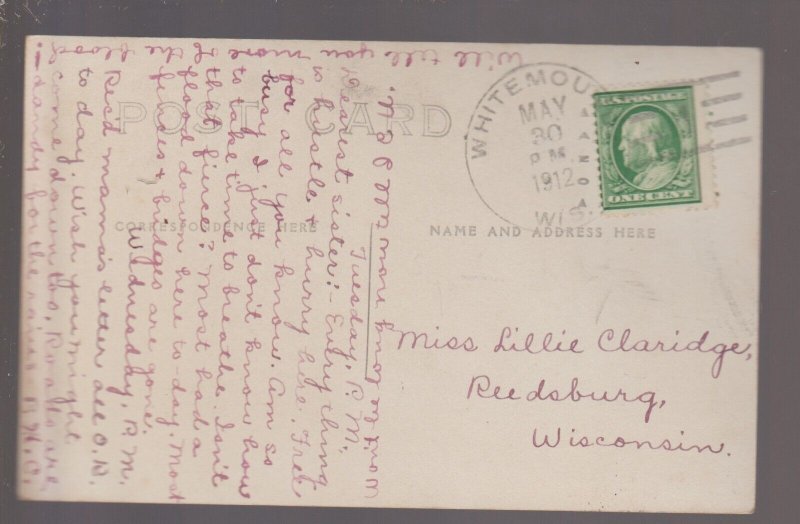 POST CARD
CORRESPONDENCE HERE
NAME AND ADDRESS HERE
WHITEMOU
MAY
30
P M
1912
WIS.
U.S. POSTAGE
ONE CENT
Miss Lillie Claridge,
Reedsburg,
Wisconsin.
Tuesday, P.M.
Dearest sister:- Everything
is hustle & hurry here. Fret
for all you know. Am so
busy I just don't know how
to take time to breathe. Isn't
that fierce? Most had a
flood down here to-day. Most
the fences & bridges are gone.
Wednesday, P.M.
Rec'd mama's letter all O.K.
to day. Wish you might
come down too, Roads are
dandy for the rains. B.H.C.
Will tell you more of the flood